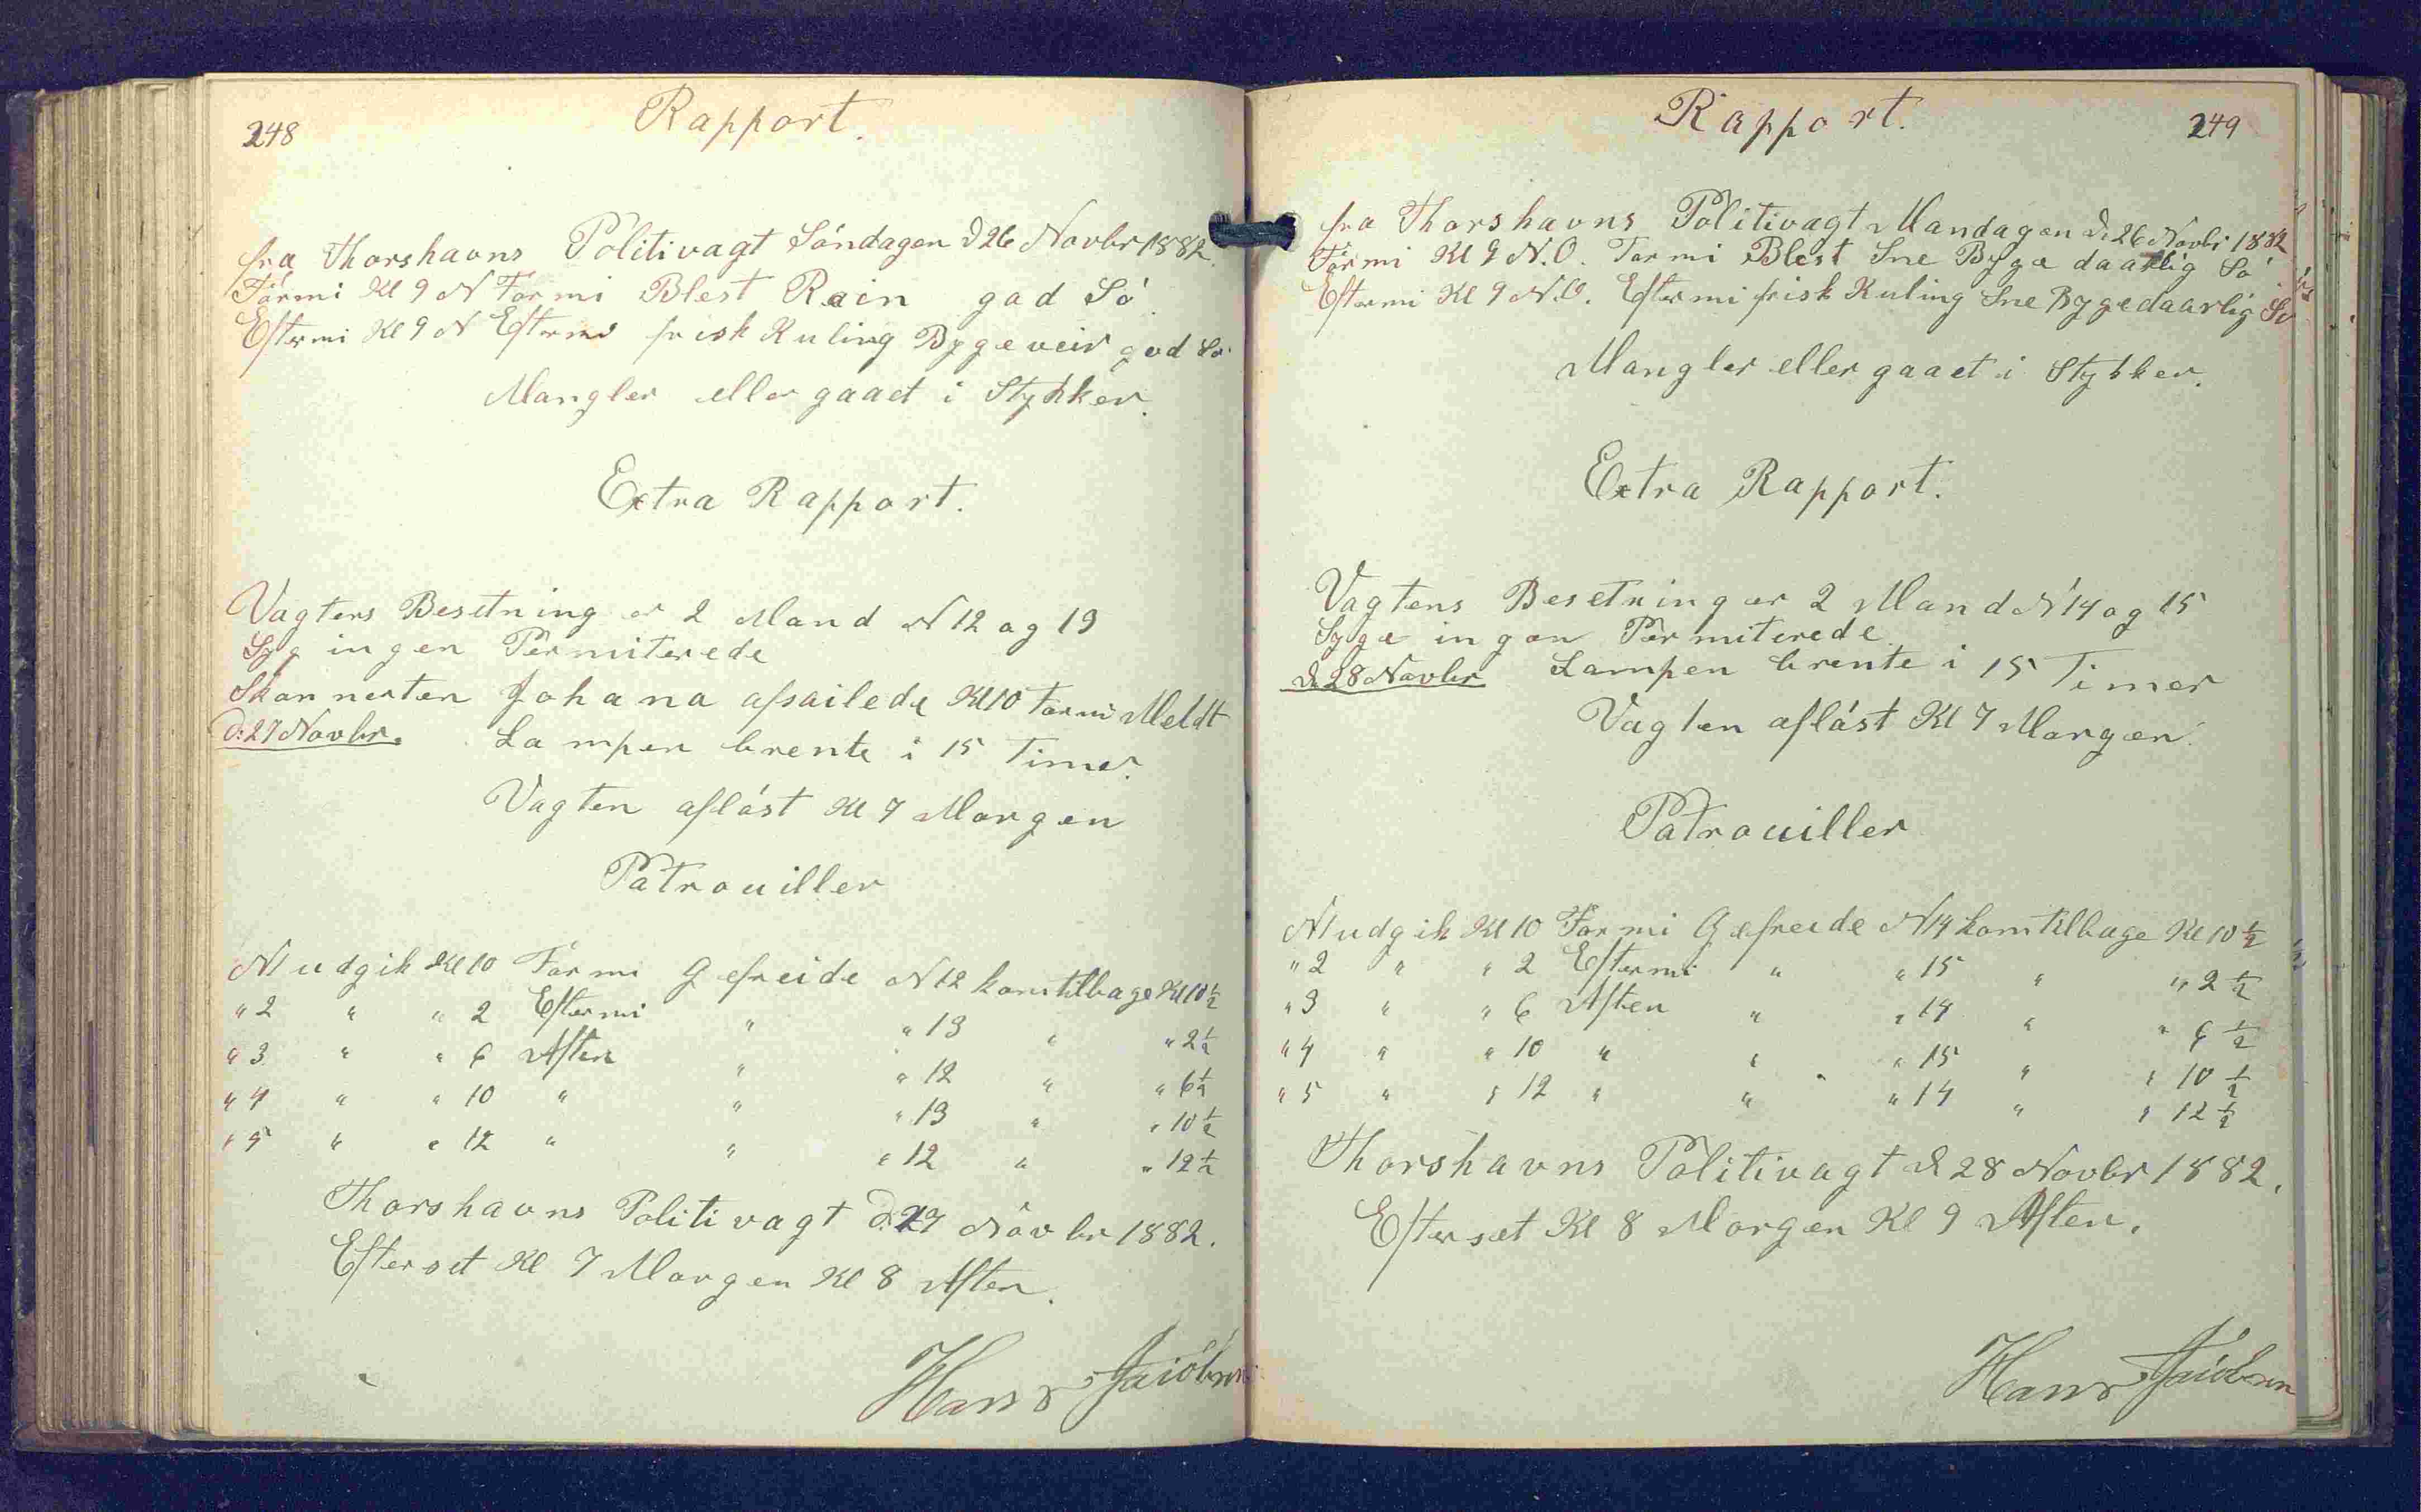 248
Rapport.
fra Thorshavns Politivagt Söndagen d 26 Novbr 1882.
Formi Kl 9 N Formi Blest Rein god Sö
Eftermi Kl 9 N Eftermi frisk Kuling Bygeveir god Sö
Mangler eller gaaet i Stykker.
Extra Rapport.
Vagters Besetning er 2 Mand N 12 og 13
Syg ingen Permiterede
Skonnerten Johana afsailede Kl 10 Formi Meldt
d: 27 Novbr. Lampen brente i 15 Timer.
Vagten aflöst Kl 7 Morgen
Patrouiller
N 1 udgik Kl 10 Formi Gefreide N 12 kom tilbage Kl 10 1/2
" 2 " " 2 Eftermi " " 13 " " 2 1/2
" 3 " " 6 Aften " " 12 " " 6 1/2
" 4 " " 10 " " " 13 " " 10 1/2
" 5 " " 12 " " " 12 " " 12 1/2
Thorshavns Politivagt d: 27 Novbr 1882.
Efterset Kl 7 Morgen Kl 8 Aften.
Hans Jaiobsen
Rapport.
249
fra Thorshavns Politivagt Mandagen d: 26 Novbr 1882
Formi Kl 9 N.O. Formi Blest Sne Byge daarlig Sö
Eftermi Kl 9 N.O. Eftermi frisk Kuling Sne Byge daarlig Sö
Mangler eller gaaet i Stykker.
Extra Rapport.
Vagtens Besetning er 2 Mand N 14 og 15
Syge ingen Permiterede
d 28 Novbr Lampen brente i 15 Timer
Vagten aflöst Kl 7 Morgen.
Patrouiller
N 1 udgik Kl 10 Formi Gefreide N 14 kom tilbage Kl 10 1/2
" 2 " " 2 Eftermi " " 15 " " 2 1/2
" 3 " " 6 Aften " " 14 " " 6 1/2
" 4 " " 10 " " " 15 " " 10 1/2
" 5 " " 12 " " " 14 " " 12 1/2
Thorshavns Politivagt d 28 Novbr 1882.
Efterset Kl 8 Morgen Kl 9 Aften.
Hans Jaiobsen